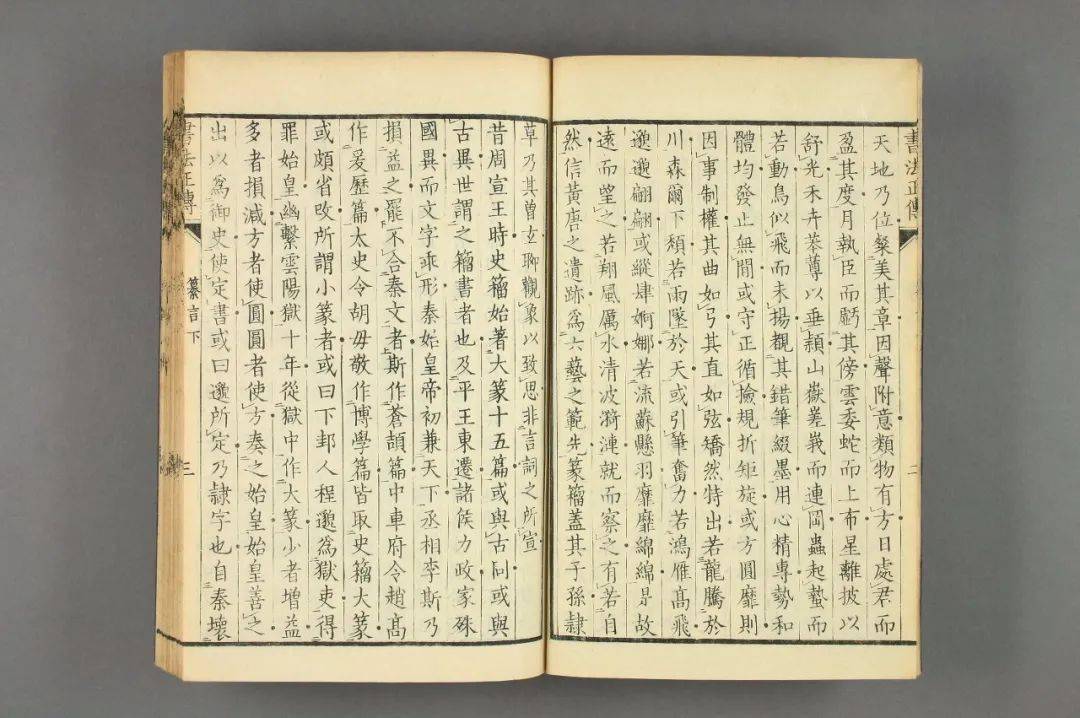 書法正傳
二
天地乃位粲美其章因聲附意類物有方日處君而
盈其度月執臣而虧其傍雲委蛇而上布星離披以
舒光禾卉苯蓴以垂穎山嶽嵳峩而連岡蟲起蟄而
若動鳥似飛而未揚觀其錯筆綴墨用心精專勢和
體均發止無間或守正循撿規折矩旋或方圓靡則
因事制權其曲如弓其直如弦矯然特出若龍騰於
川森爾下頽若雨墜於天或引筆奮力若鴻雁髙飛
邈邈翩翩或縱肆婀娜若流蘇懸羽靡靡綿綿是故
遠而望之若翔風厲水清波漪漣就而察之有若自
然信黃唐之遺跡爲六藝之範先篆籀蓋其子孫隸
草乃其曽玄聊觀象以致思非言詞之所宣
昔周宣王時史籀始著大篆十五篇或與古同或與
古異世謂之籀書者也及平王東遷諸侯力政家殊
國異而文字乖形秦始皇帝初兼天下丞相李斯乃
損益之罷不合秦文者斯作蒼頡篇中車府令趙髙
作爰歷篇太史令胡毋敬作博學篇皆取史籀大篆
或頗省改所謂小篆者或曰下邽人程邈爲獄吏得
罪始皇幽繫雲陽獄十年從獄中作大篆少者增益
多者損減方者使圓圓者使方奏之始皇始皇善之
出以爲御史使定書或曰邈所定乃隸字也自秦壞
書法正傳
纂言下
三